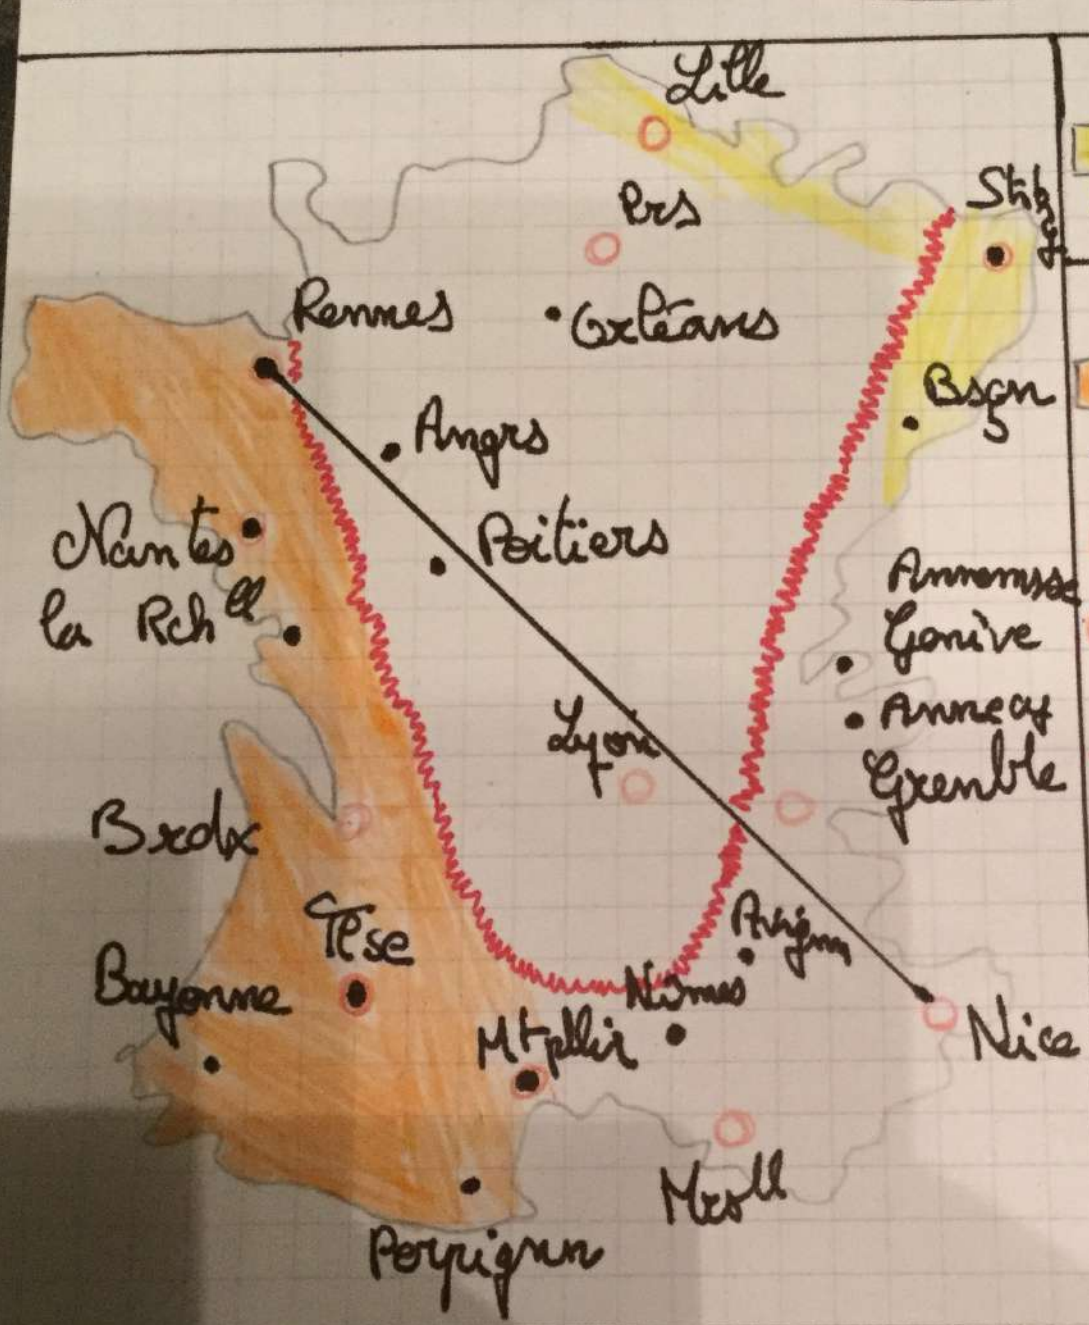 Lille
Prs
Stbg
Rennes
Orléans
Bsçn
Angrs
Poitiers
Nantes
la Rchll
Annemsse
Genève
Annecy
Grenble
Lyon
Brdx
Tlse
Avignn
Bayonne
Nîmes
Mtpllir
Nice
Mrsll
Perpignn